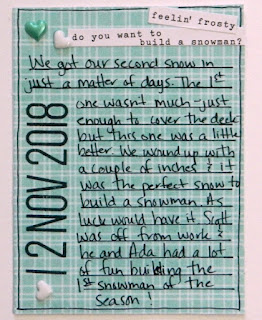 feelin' frosty
do you want to
build a snowman?
We got our second snow in
just a matter of days. The 1st
one wasn't much - just
enough to cover the deck
but this one was a little
better. We wound up with
a couple of inches & it
was the perfect snow to
build a snowman. As
luck would have it, Scott
was off from work &
he and Ada had a lot
of fun building the
1st snowman of the
season!
12 NOV 2018